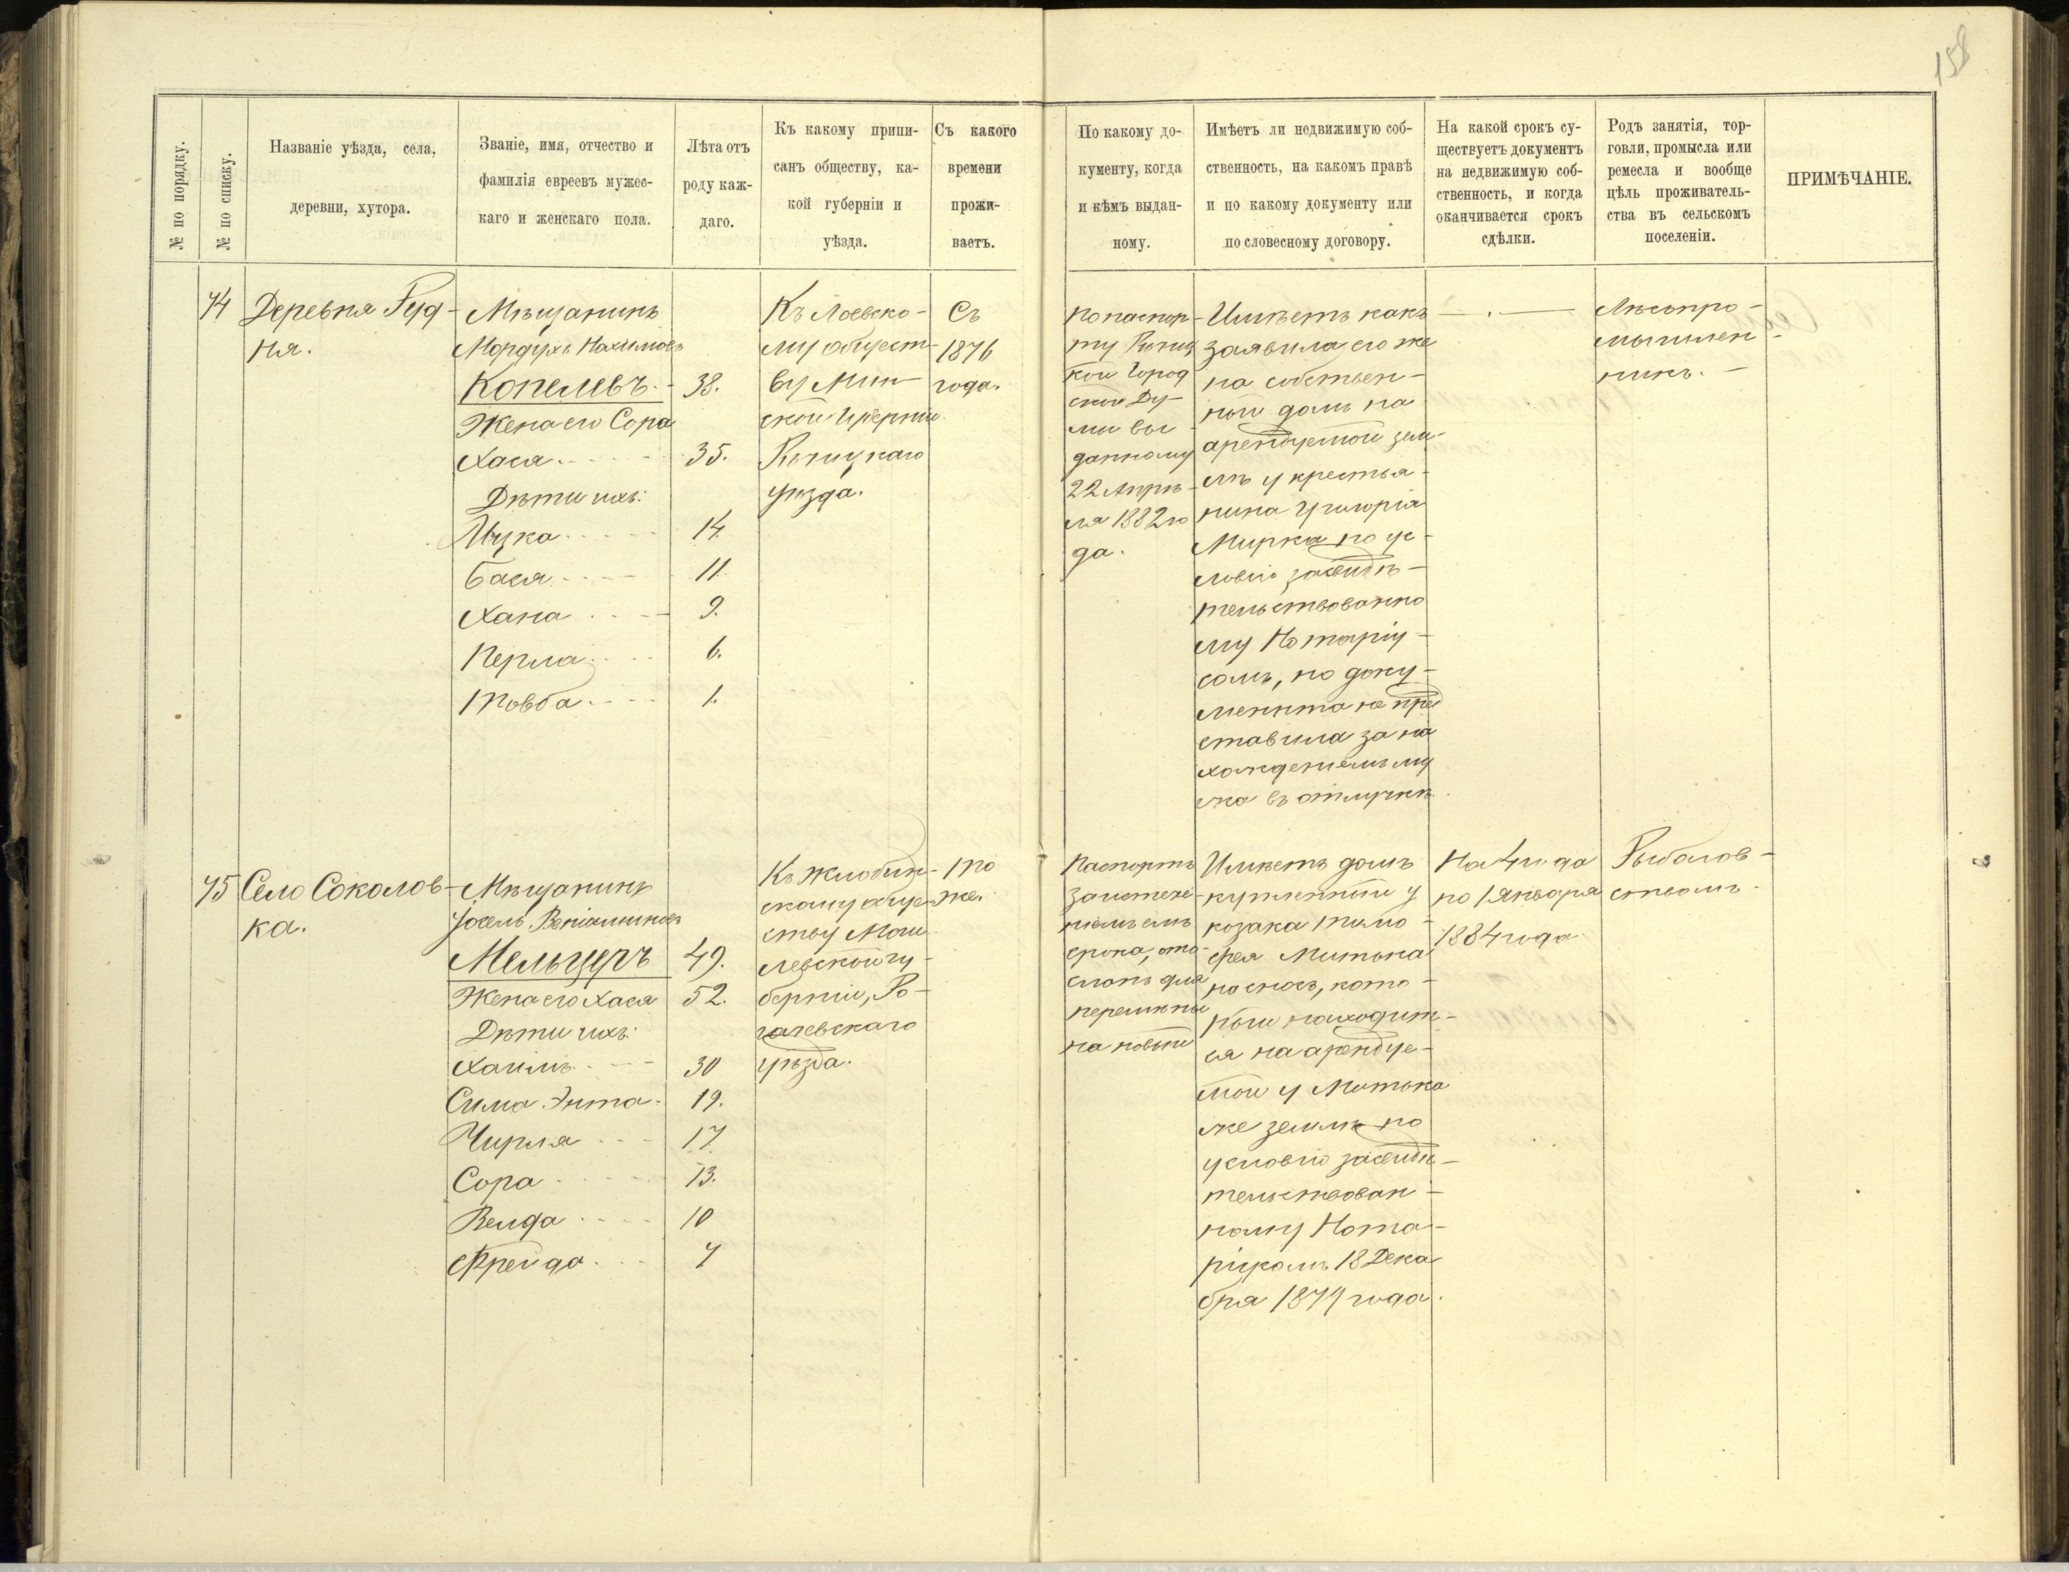 158
№ по порядку.
№ по списку.
Названіе уѣзда, села,
деревни, хутора.
Званіе, имя, отчество и
фамилія евреевъ мужес-
каго и женскаго пола.
Лѣта отъ
роду каж-
даго.
Къ какому припи-
санъ обществу, ка-
кой губерніи и
уѣзда.
Съ какого
времени
прожи-
ваетъ.
По какому до-
кументу, когда
и кѣмъ выдан-
ному.
Имѣетъ ли недвижимую соб-
ственность, на какомъ правѣ
и по какому документу или
по словесному договору.
На какой срокъ су-
ществуетъ документъ
на недвижимую соб-
ственность, и когда
оканчивается срокъ
сдѣлки.
Родъ занятія, тор-
говли, промысла или
ремесла и вообще
цѣль проживатель-
ства въ сельскомъ
поселеніи.
ПРИМѢЧАНІЕ.
74
Деревня Руд-
ня.
Мѣщанинъ
Мордухъ Нохимовъ
Копелевъ. - 38.
Жена его Сора
Хася. 35.
Дѣти ихъ:
Ицка 14.
Бася 11.
Хана 9.
Перла 6.
Товба 1.
Къ Лоевско-
му общест-
ву Мин-
ской Губерніи
Рѣчицкаго
уѣзда.
Съ
1876
года.
По паспор-
ту Рѣчиц
кой Город
ской Ду-
мы вы-
данному
22 Апрѣ-
ля 1882 го
да.
Имѣетъ какъ
заявила его же
на собствен-
ный домъ на
арендуемой зем-
лѣ у крестья-
нина Григорія
Мирка по ус-
ловію засвидѣ-
тельствованно
му Нотаріу-
сомъ, но доку-
мента не пред
ставила за на
хожденіемъ му
жа въ отлучкѣ.
— . —
Лѣсопро-
мышлен-
никъ. -
75
Село Соколов-
ка.
Мѣщанинъ
Іосель Веніаминовъ
Мельцеръ 49.
Жена его Хася 52.
Дѣти ихъ:
Хаимъ 30
Сима Энта 19.
Чирля 17.
Сора 13.
Велда 10
Фрейда 7
Къ Жлобин-
скому обще-
ству Моги
левской гу-
берніи, Ро-
гачевскаго
уѣзда.
То
же.
Паспортъ
за истече-
ніемъ емъ
срока, ото-
сланъ для
перемѣны
на новый
Имѣетъ домъ
купленный у
козака Тимо-
фея Митька
на сносъ, кото-
рый находит-
ся на арендуе-
мой у Митька
же землѣ по
условію засвидѣ-
тельствован-
ному Нота-
ріусомъ 18 Дека
бря 1879 года.
На 4 года
по 1 Января
1884 года.
Рыболов-
ствомъ.